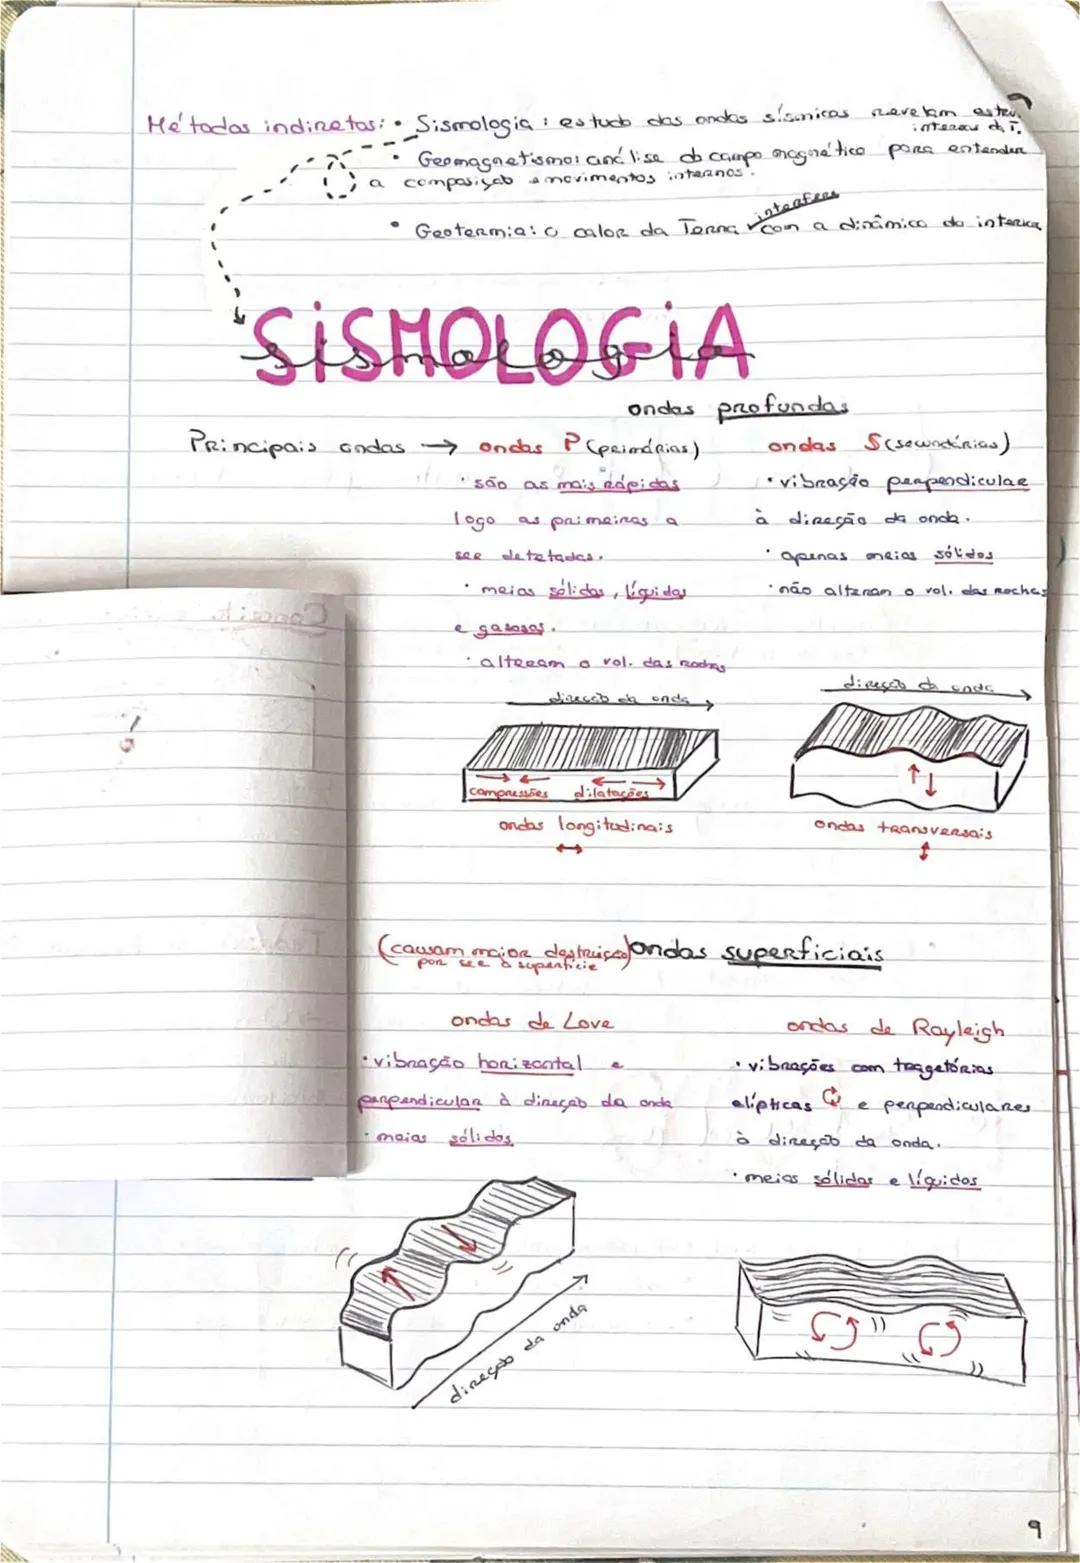 Métodos indiretos: • Sismologia: estudo das ondas sísmicas revelam estru.
interna d T.
• Geomagnetismo: análise do campo magnético para entender
a composição e movimentos internos.
interfere
• Geotermia: o calor da Terra com a dinâmica do interior
SiSMOLOGiA
sismologia
ondas profundas
Principais ondas → ondas P (primárias)
• são as mais rápidas
logo as primeiras a
ser detetadas.
• meios sólidos, líquidos
e gasosos.
• alteram o vol. das rochas
ondas S (secundárias)
• vibração perpendicular
à direção da onda.
• apenas meios sólidos
• não alteram o vol. das rochas
direção da onda
compressões dilatações
ondas longitudinais
↔
direção da onda
ondas transversais
↕
(causam maior destruição
por ser à superfície)
ondas superficiais
ondas de Love
• vibração horizontal e
perpendicular à direção da onda
• meios sólidos
ondas de Rayleigh
• vibrações com tragetórias
elípticas e perpendiculares
à direção da onda.
• meios sólidos e líquidos
direção da onda
9